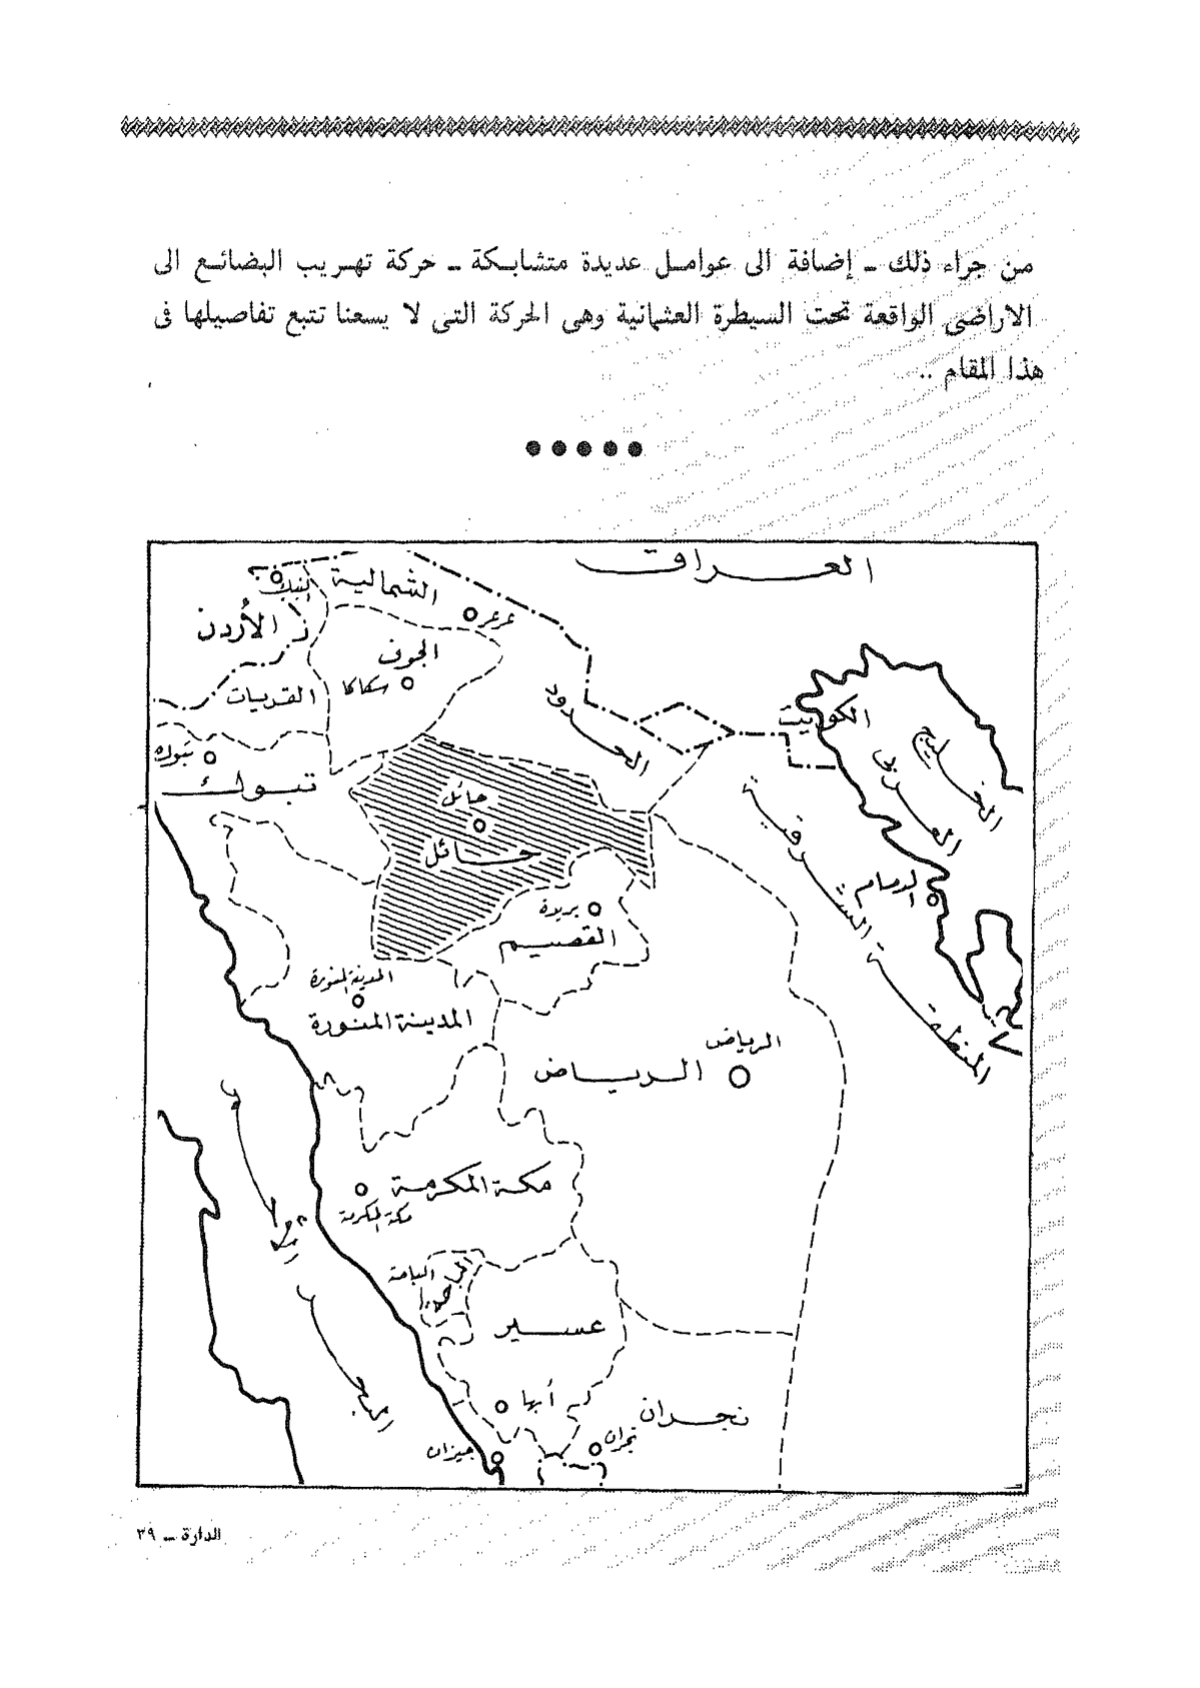 من جراء ذلك ـ إضافة الى عوامل عديدة متشابكة ـ حركة تهريب البضائع الى
الاراضى الواقعة تحت السيطرة العثمانية وهى الحركة التى لا يسعنا تتبع تفاصيلها فى
هذا المقام ..
العراق
النبك
الشمالية
عرعر
الأردن
الجوف
سكاكا
القريات
الحدود
الكويت
الخليج
العربى
تبوك
تبوك
حائل
حائل
المنطقة الشرقية
الدمام
بريدة
القصيم
المدينة المنورة
المدينة المنورة
الرياض
الرياض
مكة المكرمة
مكة المكرمة
الباحة
الباحة
عسير
أبها
نجران
نجران
جيزان
البحر
الدارة ـ ٣٩